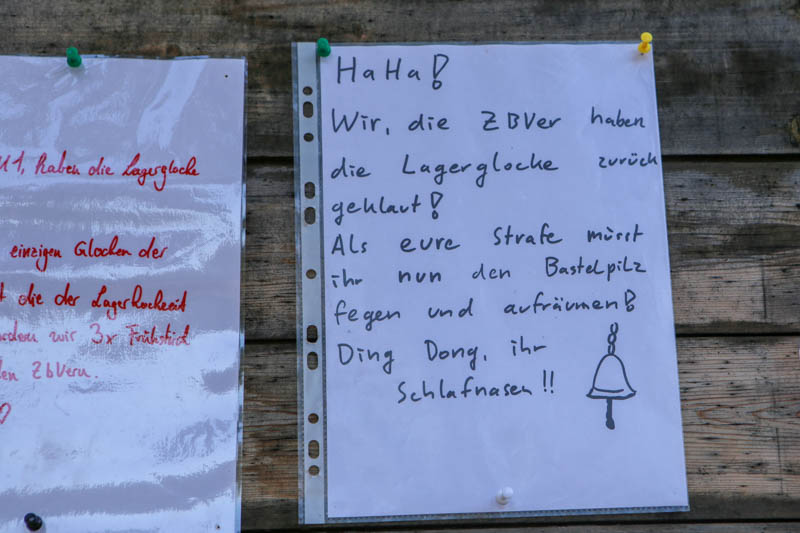 haben die Lagerglocke
einzigen Glocken der
die der Lagerhochzeit
wir 3x Frühstück
ZbVern.
HaHa!
Wir, die ZBVer haben
die Lagerglocke zurück
geklaut!
Als eure Strafe müsst
ihr nun den Bastelpilz
fegen und aufräumen!
Ding Dong, ihr
Schlafnasen!!